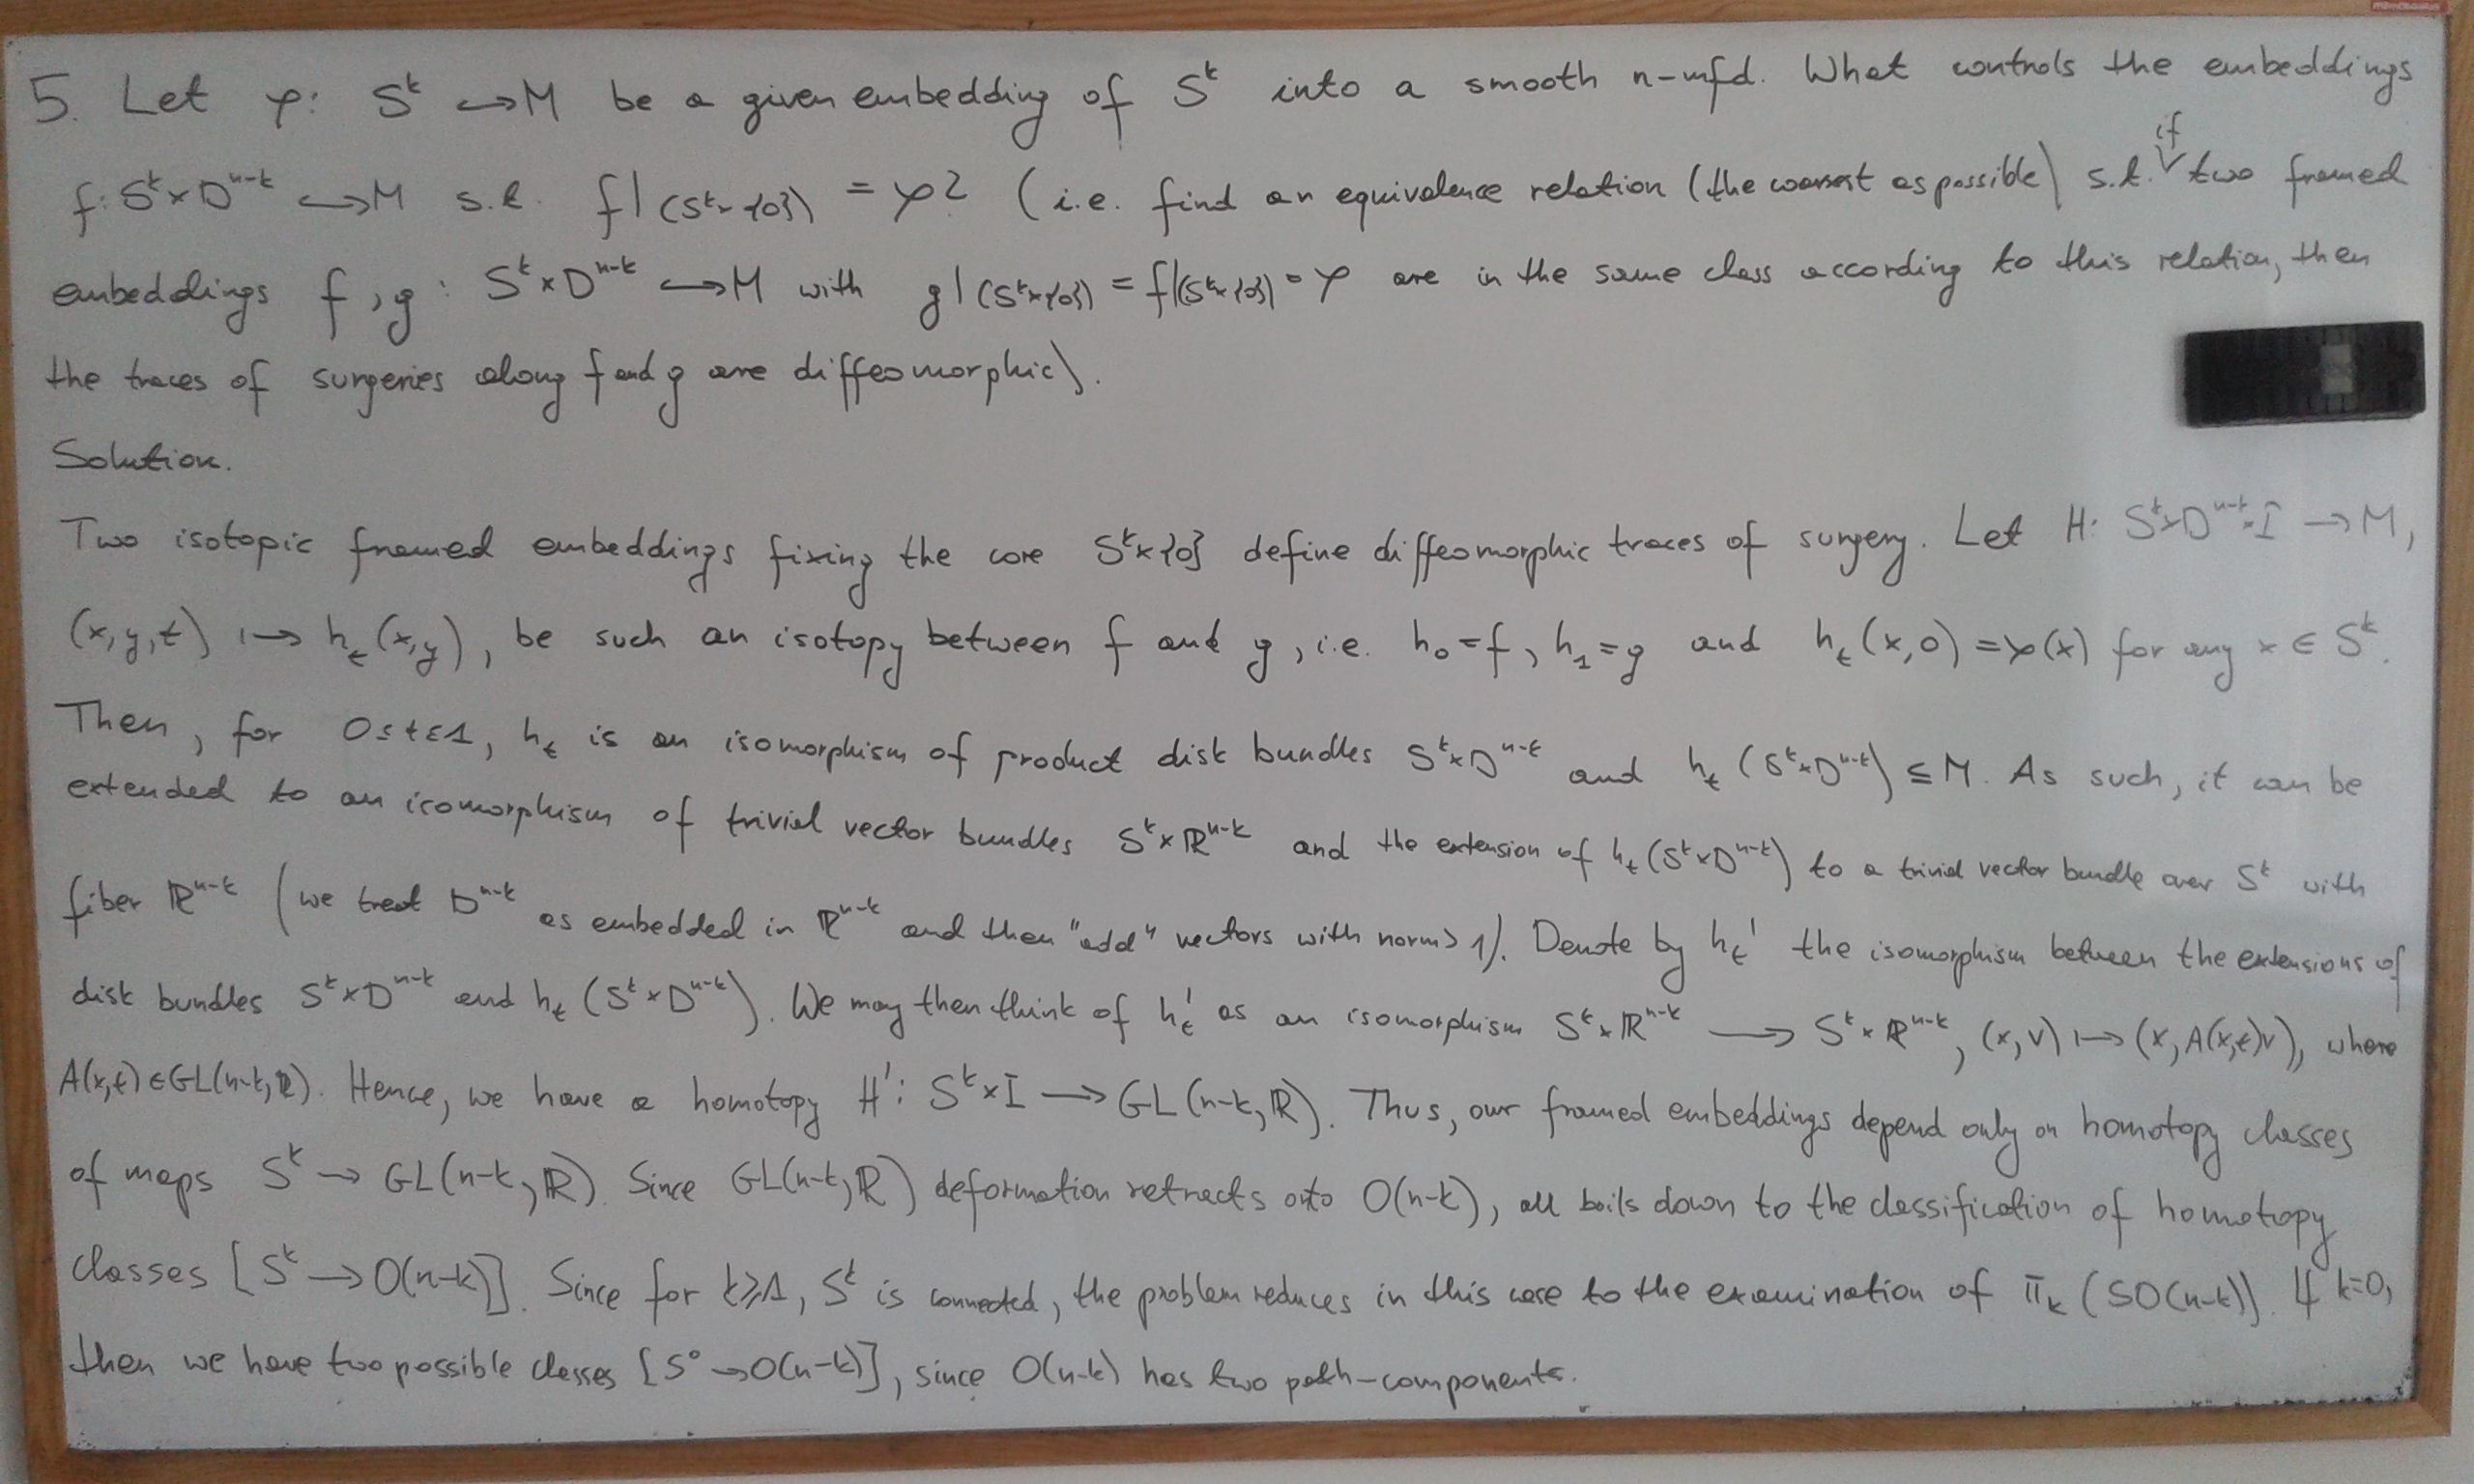 5. Let φ: S^k ↪ M be a given embedding of S^k into a smooth n-mfd. What controls the embeddings
f: S^k × D^{n-k} ↪ M s.t. f|(S^k × {0}) = φ? (i.e. find an equivalence relation (the coarsest as possible) s.t. if two framed
embeddings f, g : S^k × D^{n-k} ↪ M with g|(S^k × {0}) = f|(S^k × {0}) = φ are in the same class according to this relation, then
the traces of surgeries along f and g are diffeomorphic).
Solution.
Two isotopic framed embeddings fixing the core S^k × {0} define diffeomorphic traces of surgery. Let H: S^k × D^{n-k} × I → M,
(x, y, t) ↦ h_t(x, y), be such an isotopy between f and g, i.e. h_0 = f, h_1 = g and h_t(x, 0) = φ(x) for any x ∈ S^k.
Then, for 0 ≤ t ≤ 1, h_t is an isomorphism of product disk bundles S^k × D^{n-k} and h_t(S^k × D^{n-k}) ⊆ M. As such, it can be
extended to an isomorphism of trivial vector bundles S^k × ℝ^{n-k} and the extension of h_t(S^k × D^{n-k}) to a trivial vector bundle over S^k with
fiber ℝ^{n-k} (we treat D^{n-k} as embedded in ℝ^{n-k} and then "add" vectors with norm > 1). Denote by h_t' the isomorphism between the extensions of
disk bundles S^k × D^{n-k} and h_t(S^k × D^{n-k}). We may then think of h_t' as an isomorphism S^k × ℝ^{n-k} → S^k × ℝ^{n-k}, (x, v) ↦ (x, A(x,t)v), where
A(x,t) ∈ GL(n-k, ℝ). Hence, we have a homotopy H': S^k × I → GL(n-k, ℝ). Thus, our framed embeddings depend only on homotopy classes
of maps S^k → GL(n-k, ℝ). Since GL(n-k, ℝ) deformation retracts onto O(n-k), all boils down to the classification of homotopy
classes [S^k → O(n-k)]. Since for k ≥ 1, S^k is connected, the problem reduces in this case to the examination of π_k(SO(n-k)). If k=0,
then we have two possible classes [S^0 → O(n-k)], since O(n-k) has two path-components.